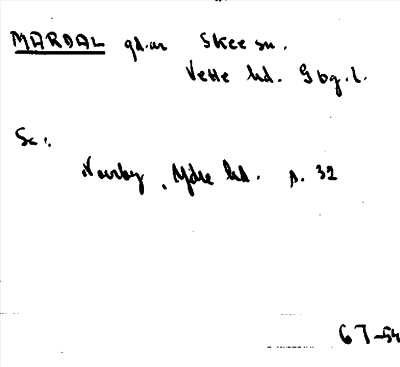 MARDAL gd.ar Skee sn.
Vette hd. Gbg.l.
Se:
Nourby, Ydre hd. s. 32
67-54